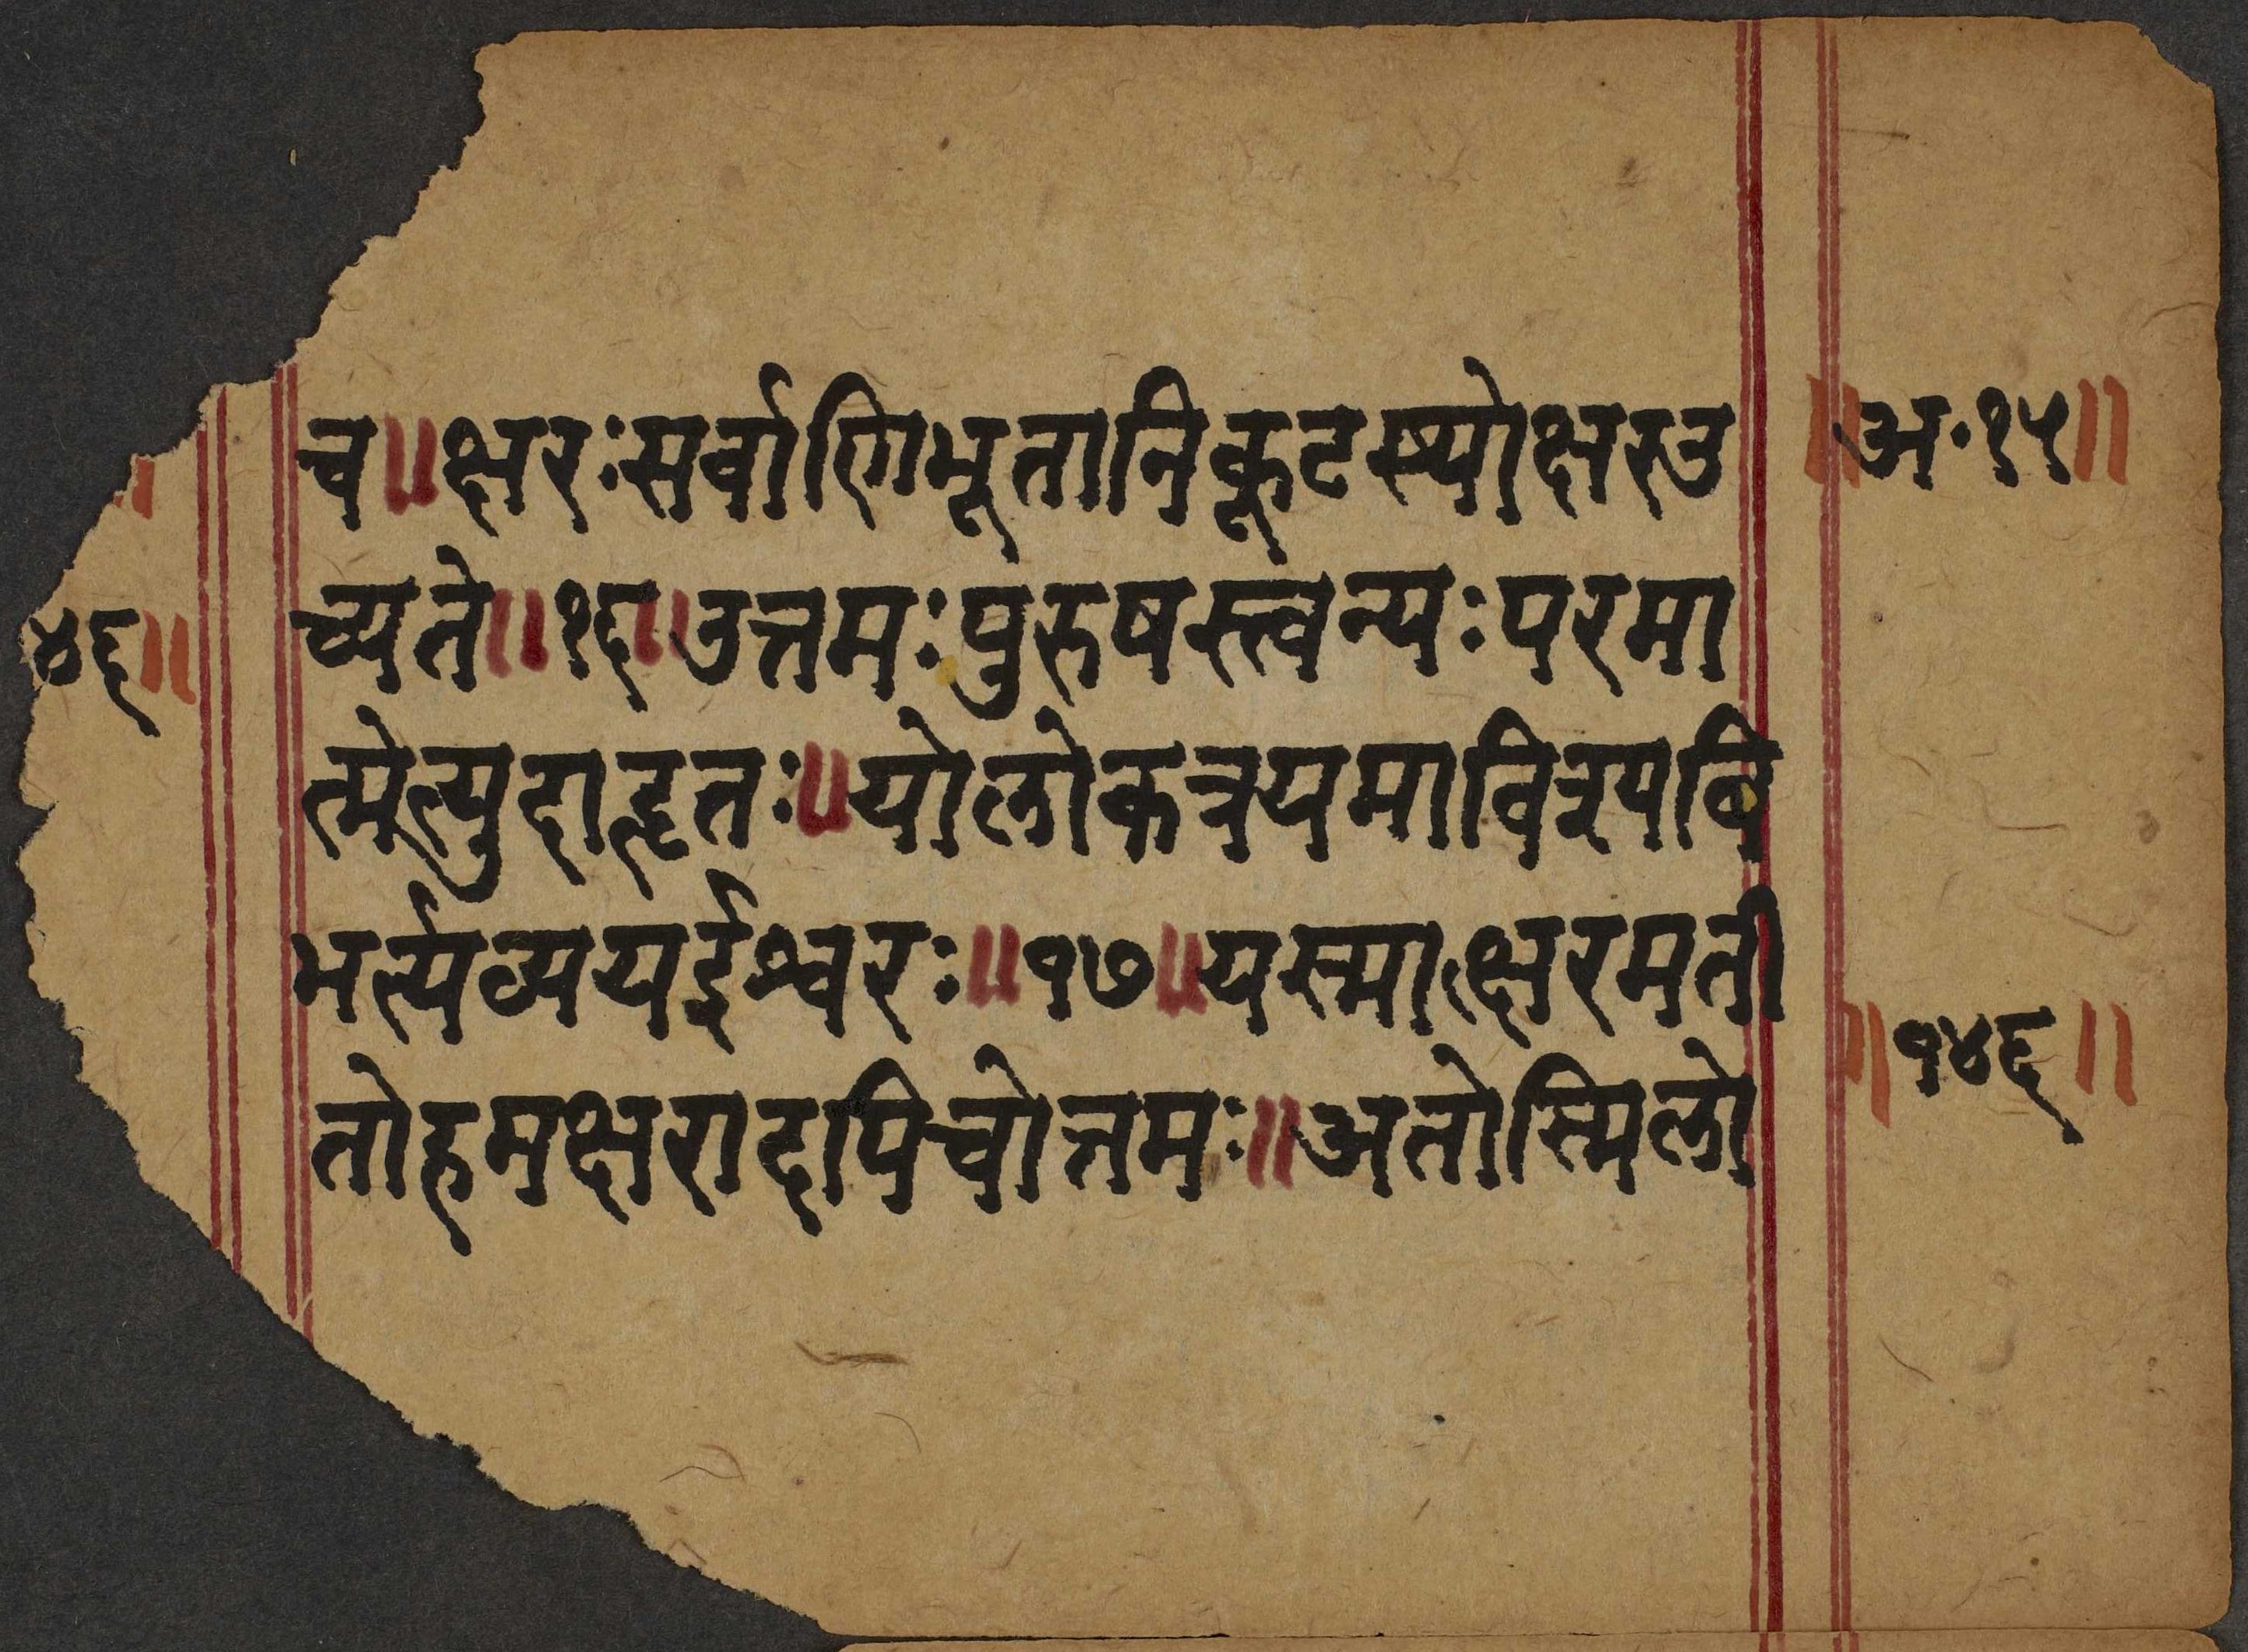 च॥क्षरःसर्वाणिभूतानिकूटस्थोक्षरउ ॥अ·१५॥
॥
च्यते॥१६॥उत्तमःपुरुषस्त्वन्यःपरमा
४६॥
त्मेत्युदाहृतः॥योलोकत्रयमाविश्यबि
भर्त्यव्ययईश्वरः॥१७॥यस्मात्क्षरमती
॥१४६॥
तोहमक्षरादपिचोत्तमः॥अतोस्मिलो